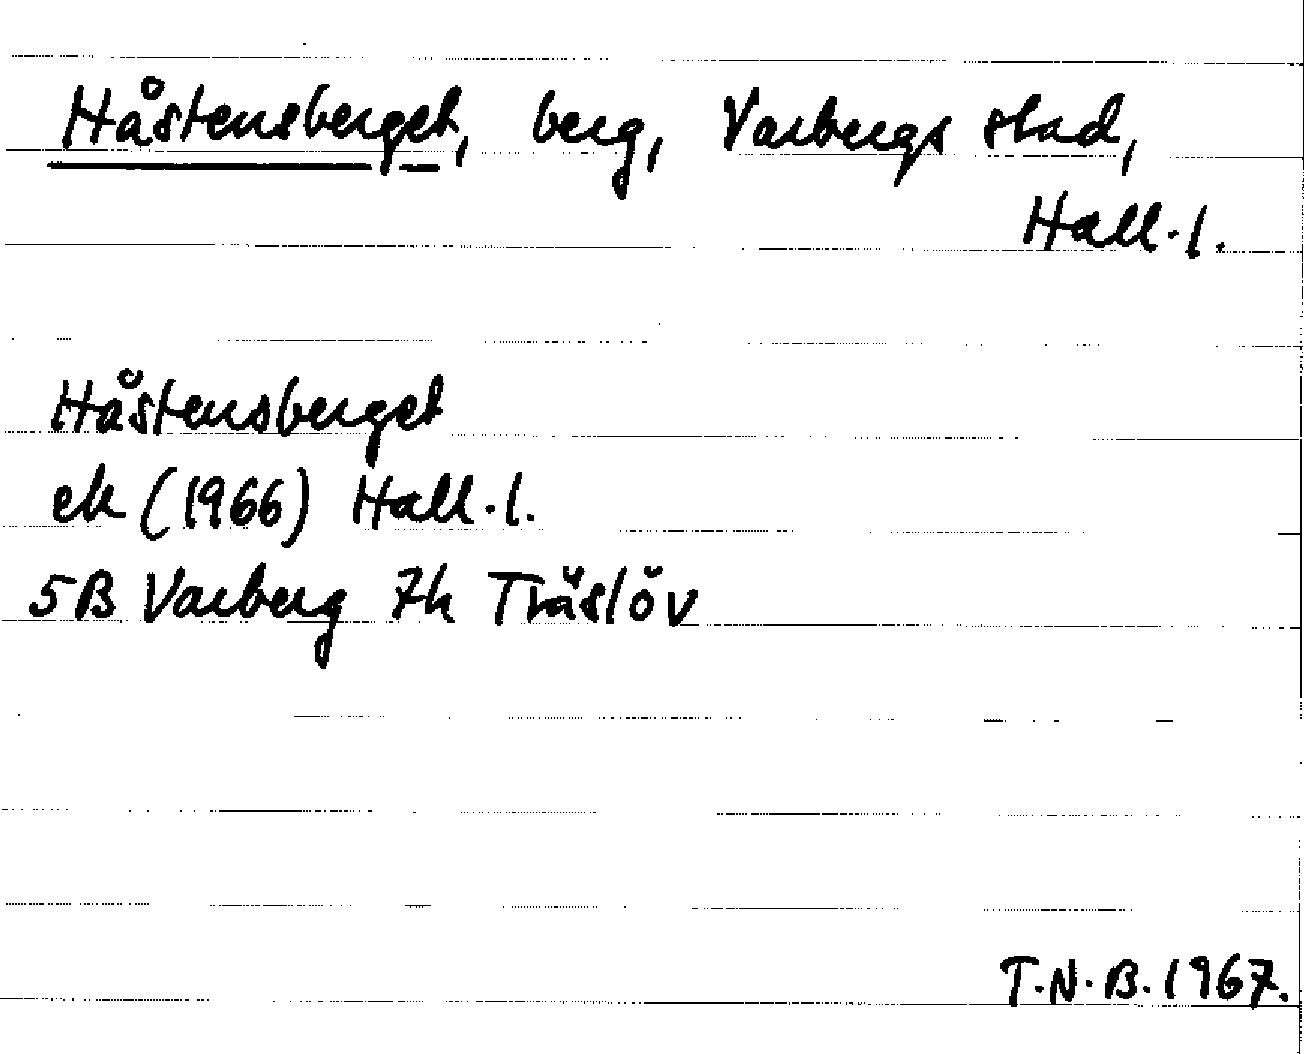 Håstensberget, berg, Varbergs stad,
Hall.l.
Håstensberget
ek (1966) Hall.l.
5B Varberg 7h Träslöv
T.N.B. 1967.